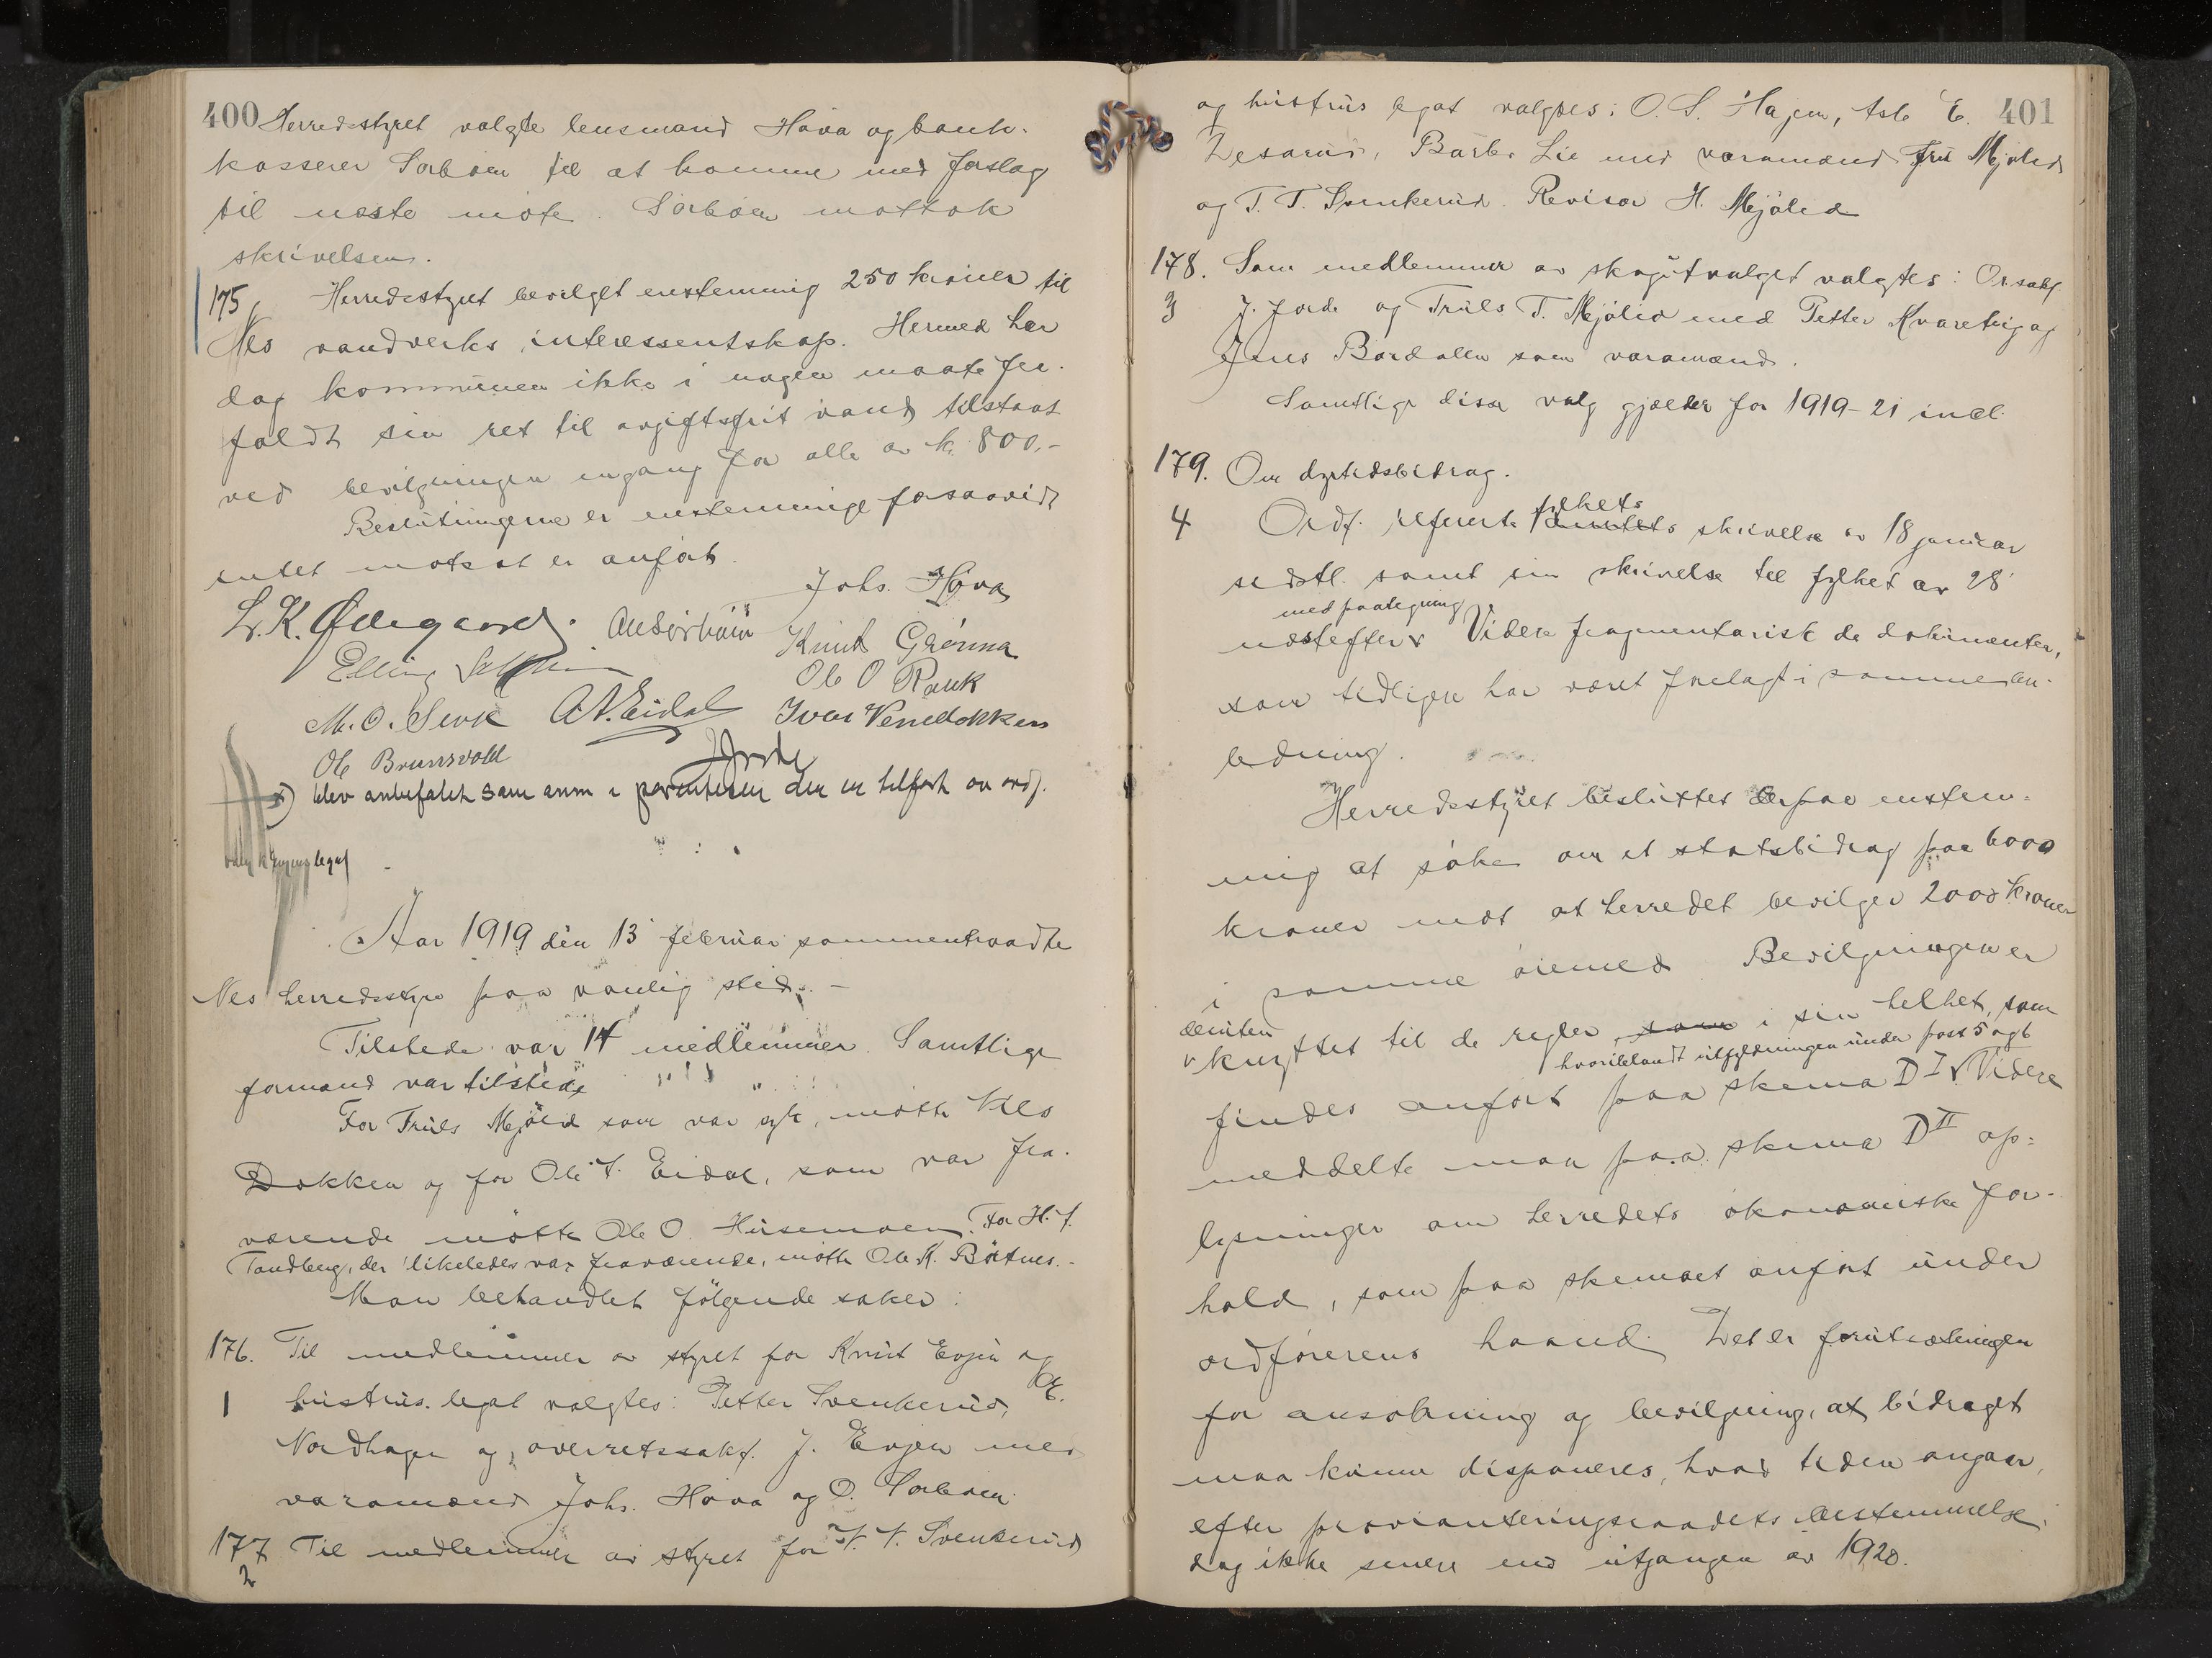 400
Herredsstyret valgte lensmand Hova og bank-
kasserer Sorbøen til at komme med forslag
til næste møte. Sorbøen mottok
skrivelsen.
175, Herredsstyret bevilget enstemmig 250 kroner til
Nes vandverks interessentskap. Hermed har
dog kommunen ikke i nogen maate fra-
faldt sin ret til avgiftsfrit vand tilstaat
ved bevilgningen engang for alle av kr. 800,-
Beslutningerne er enstemmige forsaavidt
intet motsat er anført.
Johs. Hova
L. K. Ødegaard.
Knut Grønna
Elling
Ole O Rauk
M. O. Sevk A. N. Eidal Ivar Venedokken
Ole Brunsvold JJorde
x) blev anbefalet som anm i parentesen den er tilført av ordf.
legat
Aar 1919 den 13 februar sammentraadte
Nes herredsstyre paa vanlig sted. -
Tilstede var 14 medlemmer. Samtlige
formænd var tilstede
For Truls Mjølid som var syk, møtte Nils
Dokken og for Ole T. Eidal, som var fra-
værende møtte Ole O. Husemoen. For H. T.
Tandberg, der likeledes var fraværende, møtte Ole K. Børtnes. -
Man behandlet følgende saker:
176. Til medlemmer av styret for Knut Evjen og
1 hustrus legat valgtes: Petter Svenkerud, E.
Nordhagen og overretssakf. J. Evjen med
varamænd Johs. Hova og O. Sorbøen.
177 Til medlemmer av styret for T. T. Svenkerud
2
401
og hustrus legat valgtes: O. S. Hagen, E.
Barb. Lie med varamænd Fru Mjølid
og T. T. Svenkerud. Revisor H. Mjølid
178. Som medlemmer av skogutvalget valgtes: O.r.sakf.
3 J. Jorde og Truls T. Mjølid med Petter Kvarehig og
Jens Bårdallen som varamænd.
Samtlige disse valg gjælder for 1919-21 incl.
179. Om dyrtidsbidrag.
4 Ordf. refererte fylkets amtets skrivelse av 18 januar
sidstl. samt sin skrivelse til fylket av 28'
med paategning
næstefter v Videre fragmentarisk de dokumenter,
som tidligere har været forelagt i sammenhen-
ledning.
Herredsstyret besluttet derpaa enstem-
mig at søke om et statsbidrag paa 6000
kroner mot at herredet bevilger 2000 kroner
i samme øiemed. Bevilgningen er
desuten
v knyttet til de regler, som i sin helhet, som
hvoriblandt utfyldningen under post 5 og 6
findes anført paa skema D I v Videre
meddelte man paa skema D II op-
lysninger om herredets økonomiske for-
hold, som paa skemaet anført under
ordførerens haand. Det er forutsætningen
for ansøkning og bevilgning, at bidraget
maa kunne disponeres, hvad tiden angaar,
efter provianteringsraadets bestemmelse,
dog ikke senere end utgangen av 1920.